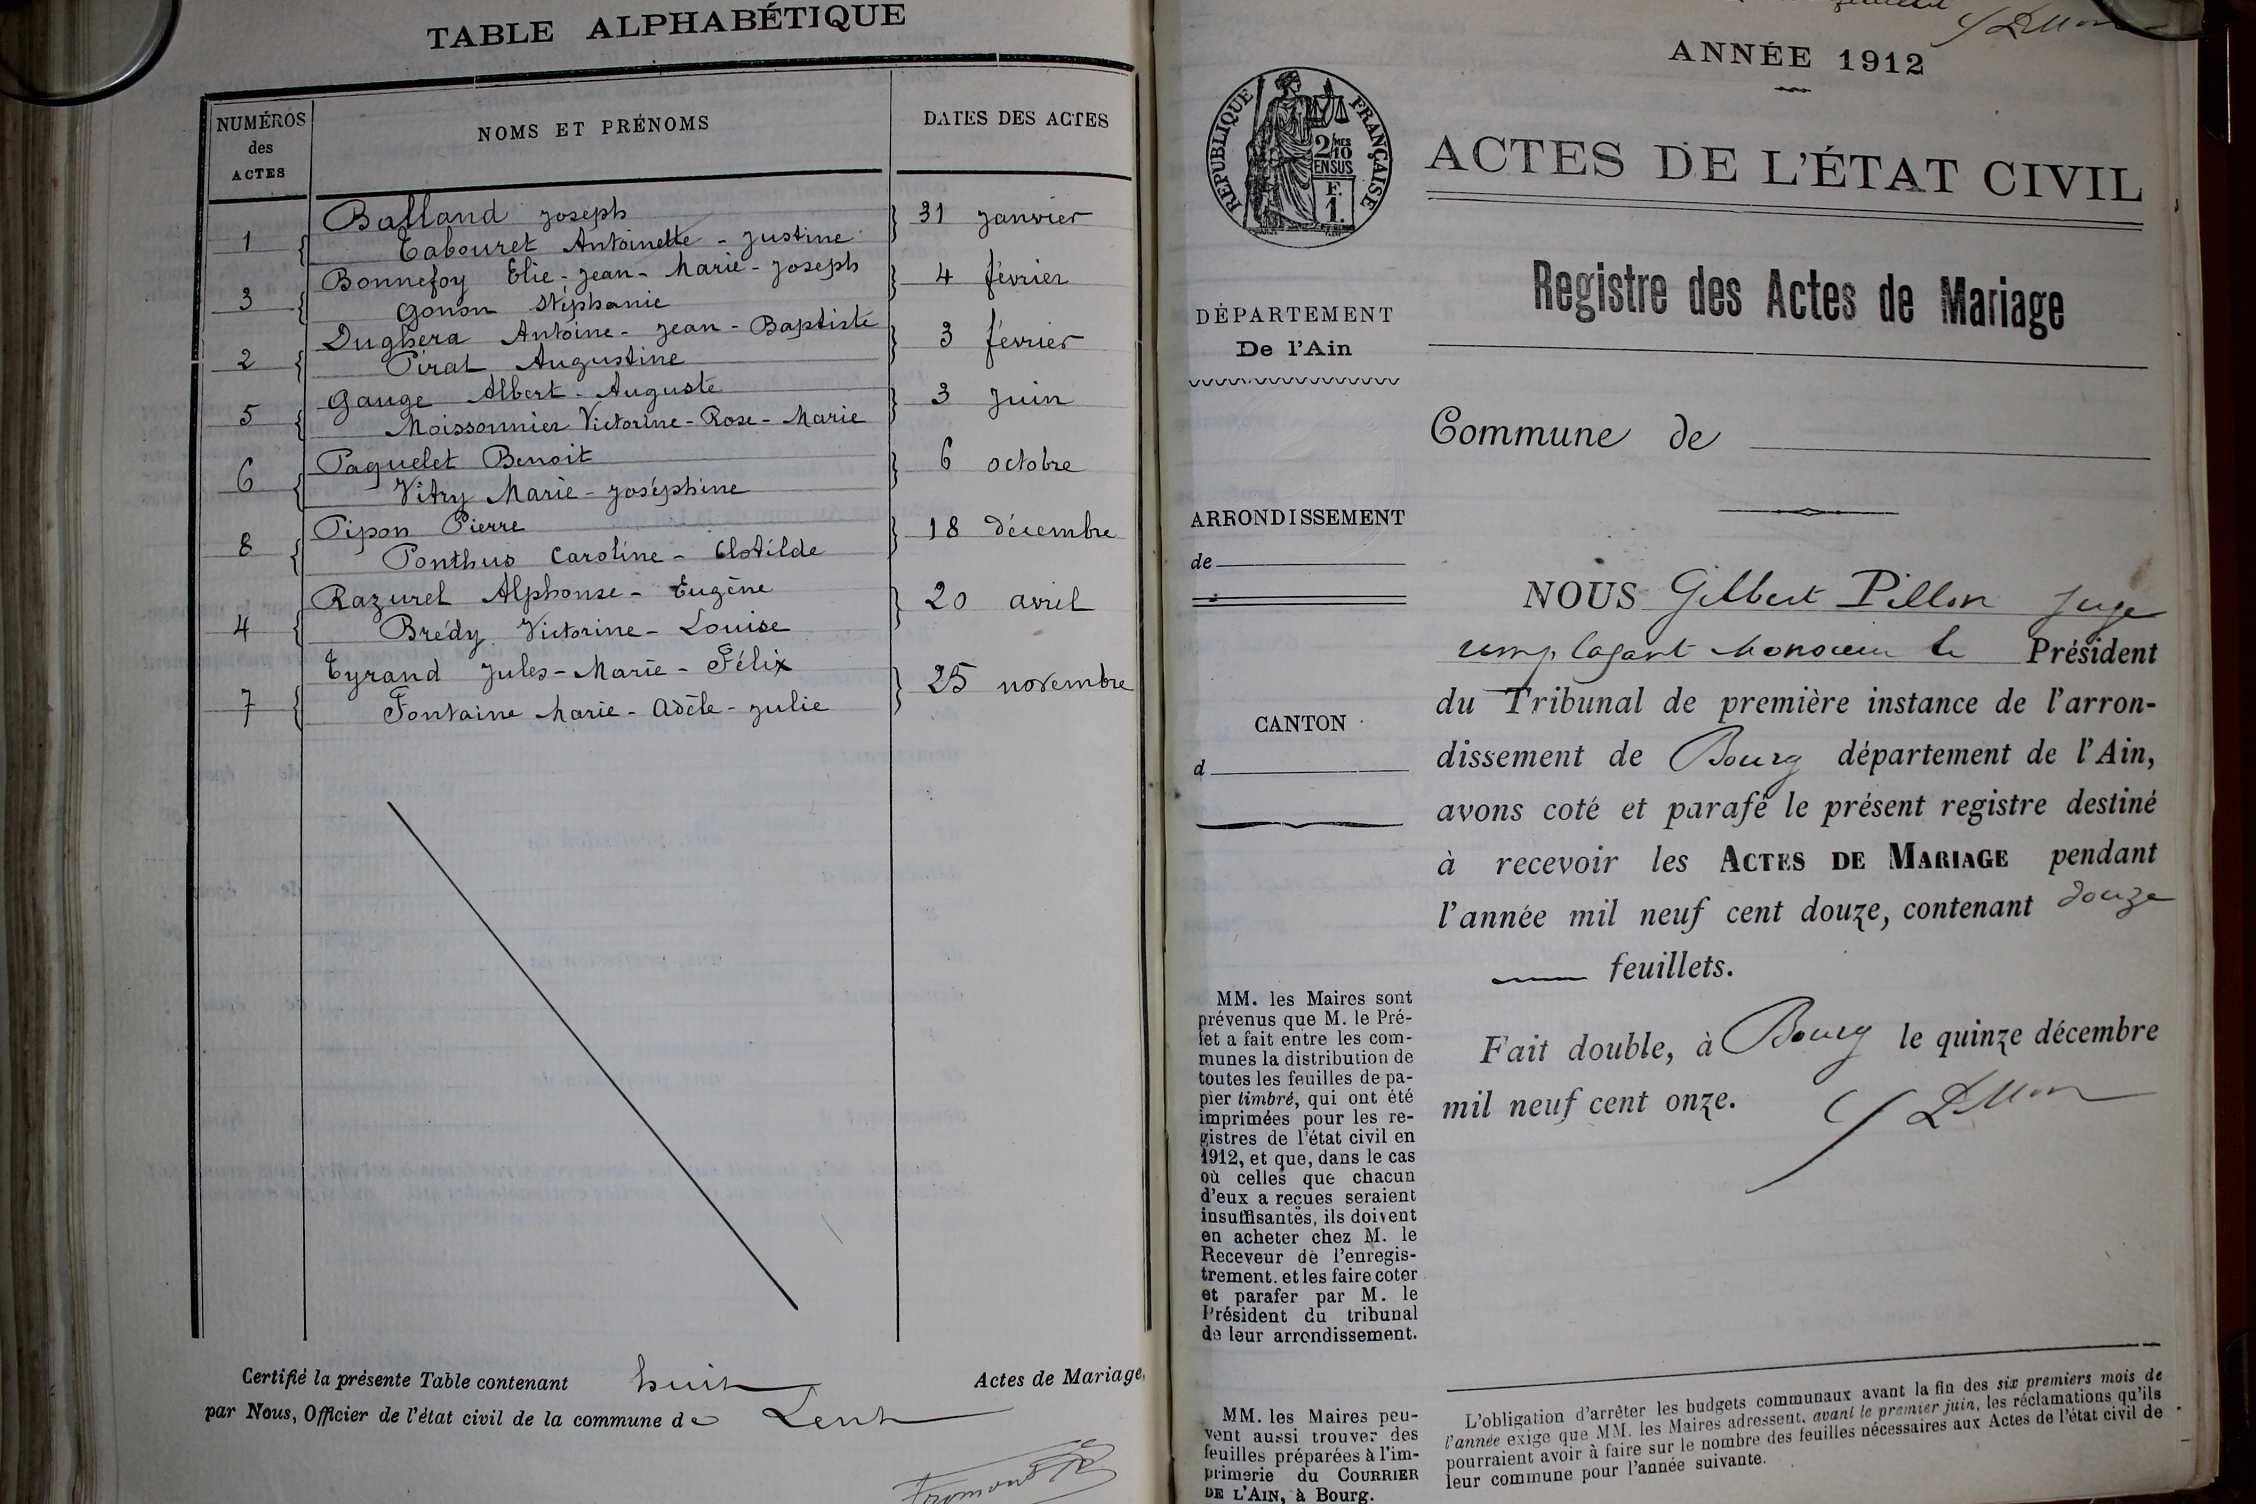 TABLE ALPHABÉTIQUE
NUMÉROS
des
ACTES
NOMS ET PRÉNOMS
DATES DES ACTES
Balland Joseph
1 Tabouret Antoinette - Justine 31 janvier
Bonnefoy Elie - Jean - Marie - Joseph
3 Gonon Stéphanie 4 février
Dughera Antoine - Jean - Baptiste
2 Pirat Augustine 3 février
Gauge Albert - Auguste
5 Moissonnier Victorine - Rose - Marie 3 juin
Paquelet Benoit
6 Vitry Marie - Joséphine 6 octobre
Pipon Pierre
8 Ponthus Caroline - Clotilde 18 décembre
Razurel Alphonse - Eugène
4 Brédy Victorine - Louise 20 avril
Tyrand Jules - Marie - Félix
7 Fontaine Marie - Adèle - Julie 25 novembre
Certifié la présente Table contenant huit Actes de Mariage,
par Nous, Officier de l'état civil de la commune de Lent
ANNÉE 1912
RÉPUBLIQUE FRANÇAISE
2/10 MES
EN SUS
F.
1.
ACTES DE L'ÉTAT CIVIL
Registre des Actes de Mariage
DÉPARTEMENT
De l'Ain
Commune de
ARRONDISSEMENT
de
CANTON
d
NOUS Gilbert Pillon Juge
remplaçant Monsieur le Président
du Tribunal de première instance de l'arron-
dissement de Bourg département de l'Ain,
avons coté et parafé le présent registre destiné
à recevoir les ACTES DE MARIAGE pendant
l'année mil neuf cent douze, contenant douze
feuillets.
Fait double, à Bourg le quinze décembre
mil neuf cent onze.
MM. les Maires sont
prévenus que M. le Pré-
fet a fait entre les com-
munes la distribution de
toutes les feuilles de pa-
pier timbré, qui ont été
imprimées pour les re-
gistres de l'état civil en
1912, et que, dans le cas
où celles que chacun
d'eux a reçues seraient
insuffisantes, ils doivent
en acheter chez M. le
Receveur de l'enregis-
trement. et les faire coter
et parafer par M. le
Président du tribunal
de leur arrondissement.
MM. les Maires peu-
vent aussi trouver des
feuilles préparées à l'im-
primerie du COURRIER
DE L'AIN, à Bourg.
L'obligation d'arrêter les budgets communaux avant la fin des six premiers mois de
l'année exige que MM. les Maires adressent, avant le premier juin, les réclamations qu'ils
pourraient avoir à faire sur le nombre des feuilles nécessaires aux Actes de l'état civil de
leur commune pour l'année suivante.